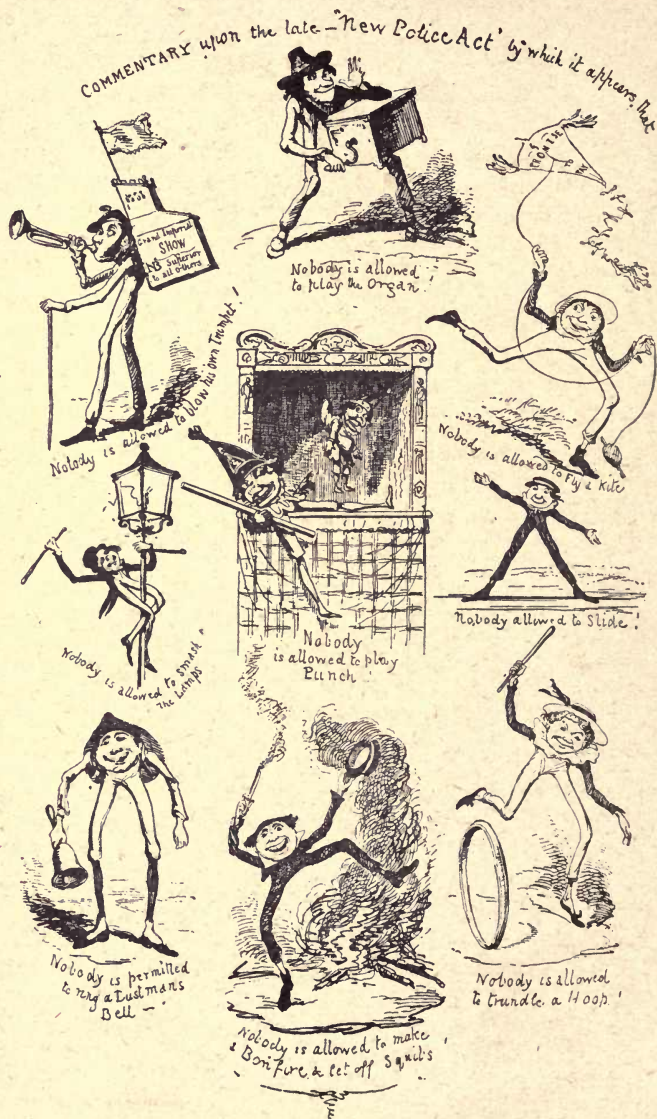 COMMENTARY upon the late - "New Police Act" by which it appears, that
Grand Imperial
SHOW
NB Superior
to all others
Nobody is allowed to blow his own Trumpet!
Nobody is allowed
to play the Organ!
Nobody is allowed to Fly a Kite
Nobody is allowed to smash
The Lamps
Nobody
is allowed to play
Punch!
Nobody allowed to Slide!
Nobody is permitted
to ring a Dustmans
Bell —
Nobody is allowed to make
a Bonfire & let off Squibs!
Nobody is allowed
to trundle a Hoop!